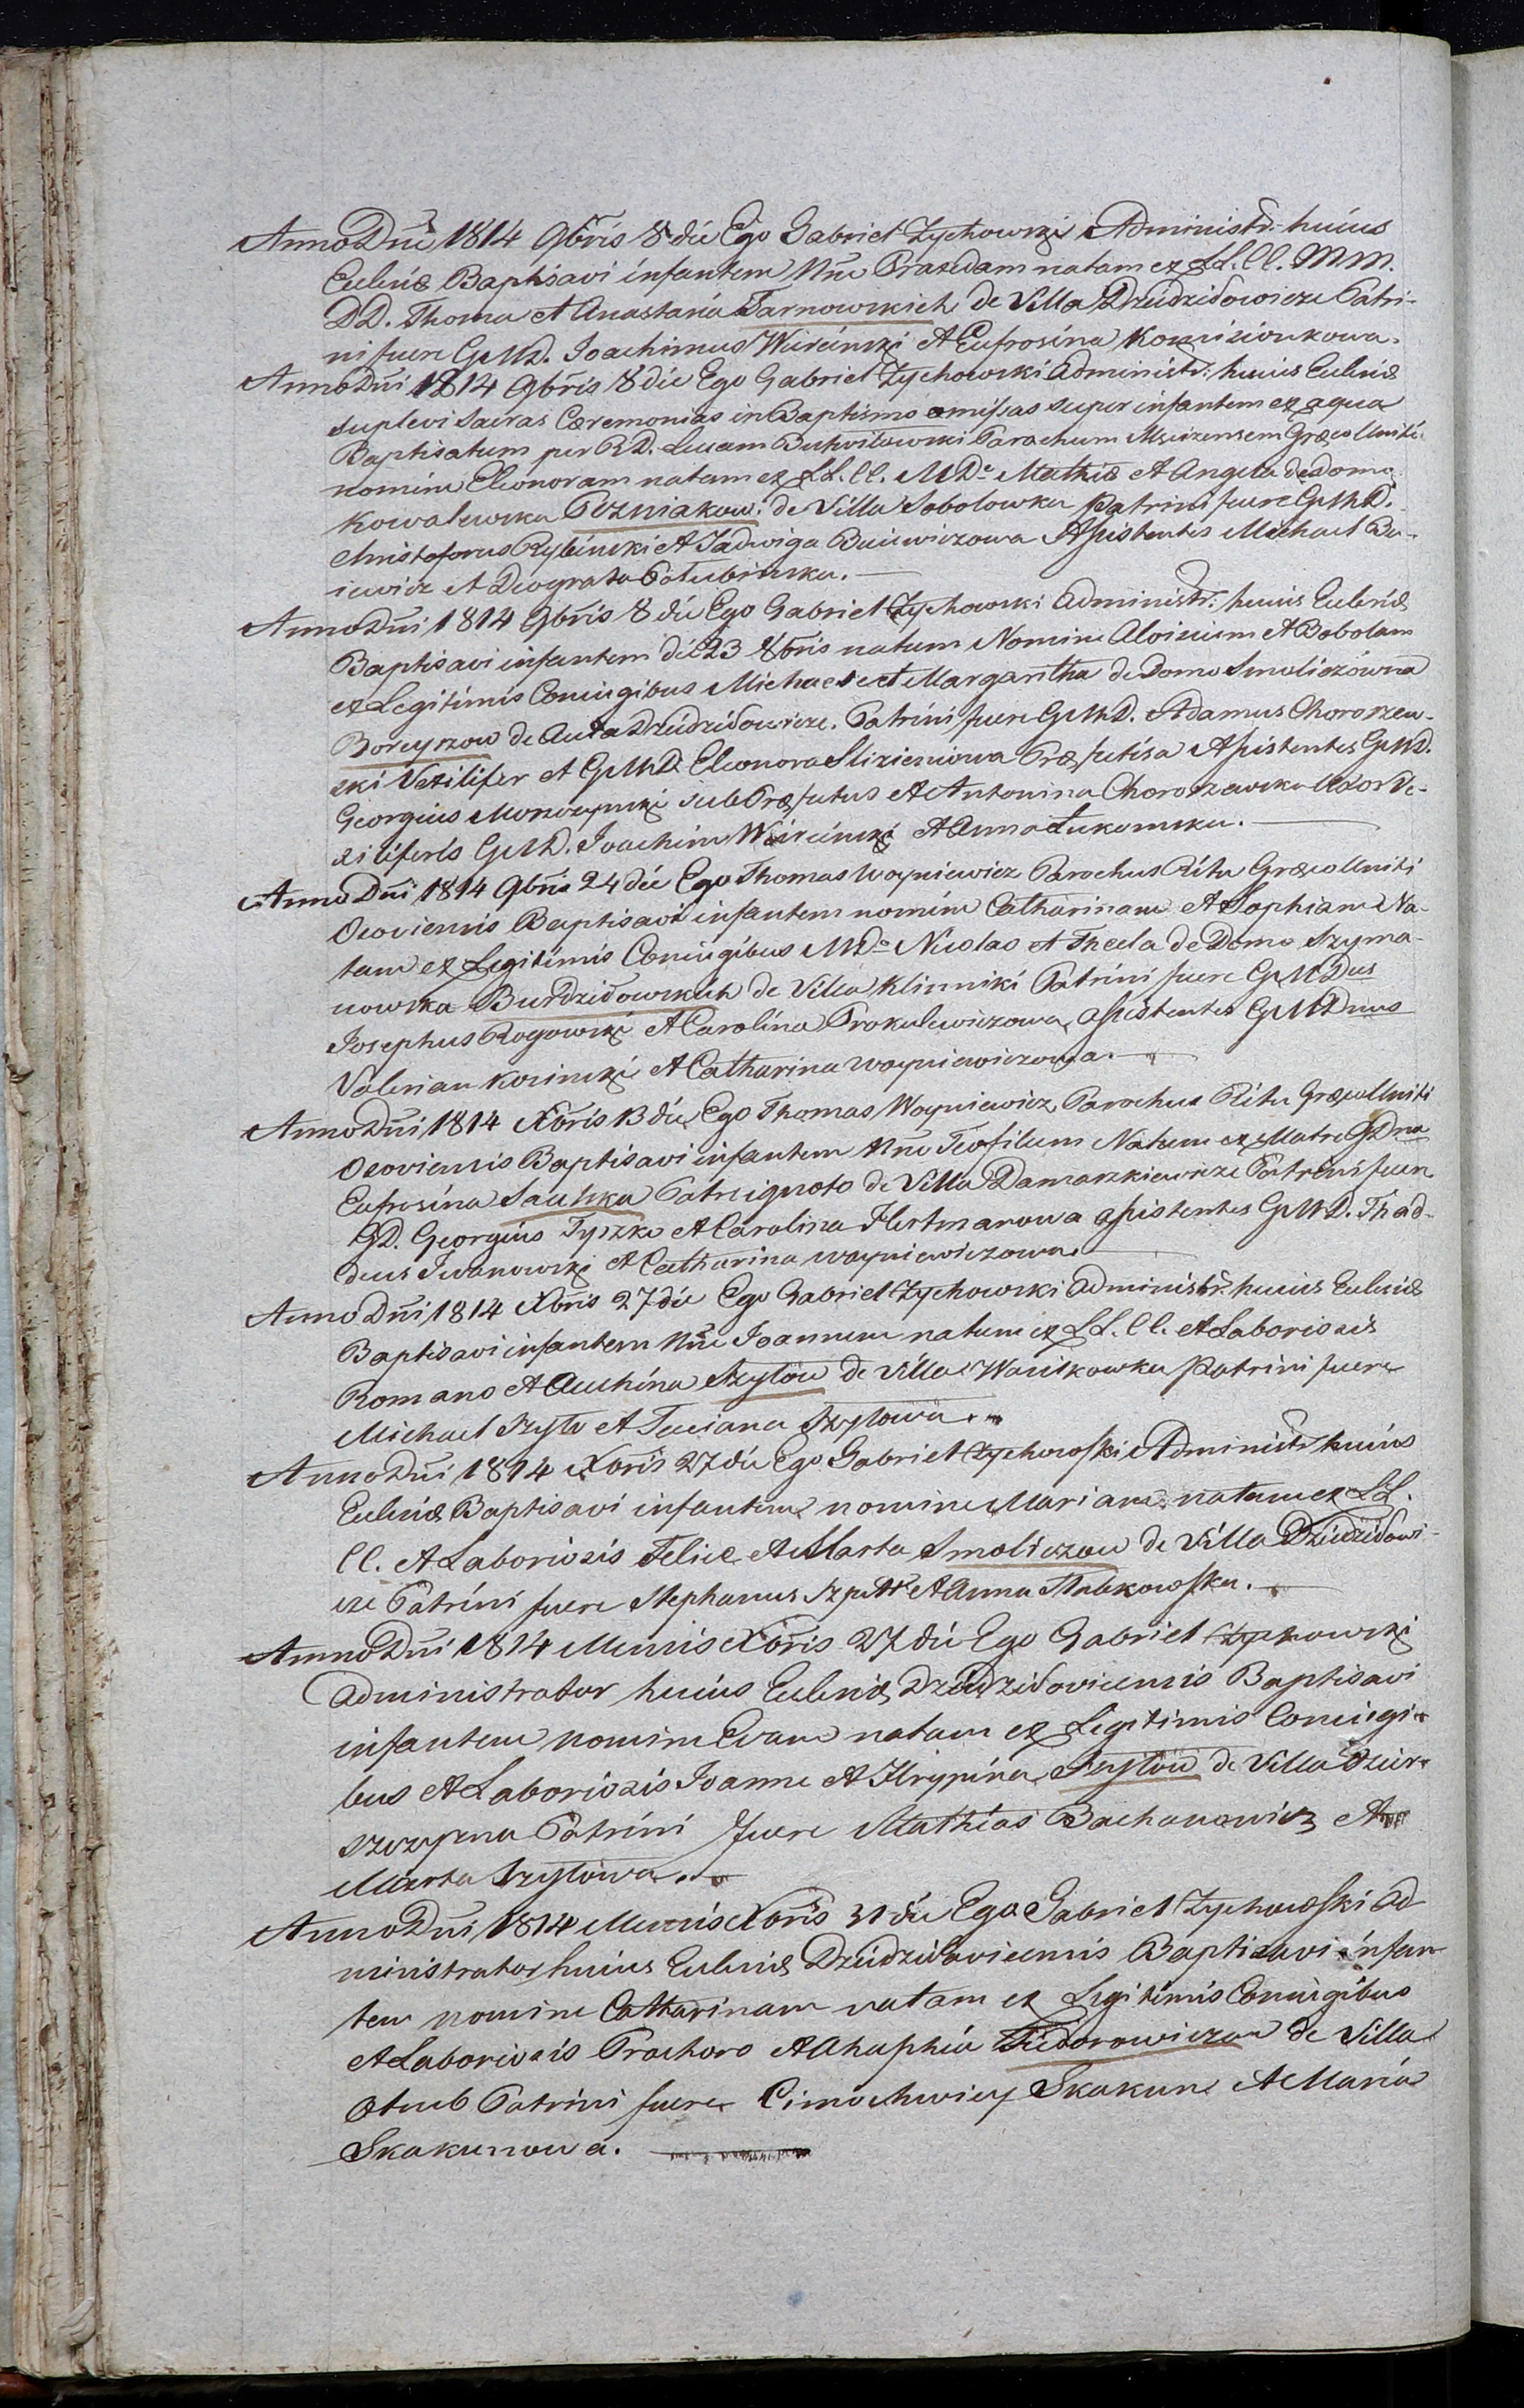 Anno Dni 1814 9bris 8 die Ego Gabriel Zychowski Administr: huius
Eccleiæ Baptisavi infantem Nne Praxedam natam ex LL. CC. MM.
DD. Thoma et Anastasia Tarnowskich de Villa Dziedziłowicze Patri-
ni fuere GMD. Joachimus Wierciński et Eufrosina
Anno Dni 1814 9bris 8 die Ego Gabriel Zychowski Administr: huius Eccleiæ
suplevi Sacras Cæremonias in Baptismo omissas super infantem ex aqua
Baptisatum per RD. Lucam Butwiłowski Parochum Græco Uniti
nomine Eleonoram natam ex LL. CC. MD. Mathia et Angela de Domo
Kowalewska Pozniakow: de Villa Sobolowka Patrini fuere GMD.
Christoforus Rybiński et Jadwiga Buiewiczowa Assistentes Michael Bu-
iewicz et Deograta Połubinska.
Anno Dni 1814 9bris 8 die Ego Gabriel Zychowski Administr: huius Eccleiæ
Baptisavi infantem die 23 8bris natum Nomine Aloisium et Bobolam
ex Legitimis Coniugibus Michaele et Margaritha de Domo Smoliczowna
Boreyszow de Dziedziłowicze. Patrini fuere GMD. Adamus Chorozew-
ski Vexilifer et GMD. Eleonora Slizieniowa Præfectisa Assistentes GMD.
Georgius sub Præfectus et Antonina Chorozewska Uxor Ve-
xiliferis GMD. Joachim Wierciński et Anna Łukomska.
Anno Dni 1814 9bris 24 die Ego Thomas Woyniewicz Parochus Ritu Græco Uniti
Osoviensis Baptisavi infantem nomine Catharinam et Sophiam Na-
tam ex Legitimis Coniugibus MD. Nicolao et Thecla de Domo Szyma-
nowska Burdziłowskich de Villa Klinniki Patrini fuere GMDus
Josephus Rogowski et Carolina Prokulewiczowa, assistentes GMDnus
Valerian Kosinski et Catharina Woyniewiczowa.
Anno Dni 1814 Xbris 13 die Ego Thomas Woyniewicz Parochus Ritu Græco Uniti
Osoviensis Baptisavi infantem Nne Teofilum Natum ex Matre GDna
Eufrosina Saulska Patre ignoto de Villa Damaszkiewicze Patrini fuere
GD. Georgius Tyszko et Carolina Hertmanowa assistentes GMD. Thad-
deus Iwanowski et Catharina Woyniewiczowa.
Anno Dni 1814 Xbris 27 die Ego Gabriel Zychowski Administr: huius Eccleiæ
Baptisavi infantem Nne Joannem natum ex LL. CC. et Laboriosis
Romano et Szyłow de Villa Wasilkowka Patrini fuere
Michael Szyło et Taciana Szyłowa.
Anno Dni 1814 Xbris 27 die Ego Gabriel Zychowski Administr huius
Eccleiæ Baptisavi infantem nomine Mariam natam ex LL.
CC. et Laboriosis Felice et Marta Smoliczow de Villa Dziedziłowi-
cze Patrini fuere Stephanus et Anna
Anno Dni 1814 Mensis Xbris 27 die Ego Gabriel Zychowski
Administrator huius Eccleiæ Dziedziłoviensis Baptisavi
infantem nomine Evam natam ex Legitimis Coniugi-
bus et Laboriosis Joanne et Hrypina Szyłow de Villa
Patrini fuere Mathias Bachanowicz et
Marta Szyłowa.
Anno Dni 1814 Mensis Xbris 31 die Ego Gabriel Zychowski Ad
ministrator huius Eccleiæ Dziedziłoviensis Baptisavi infan
tem nomine Catharinam natam ex Legitimis Coniugibus
et Laboriosis Prochoro et Ahaphia Fiedorowiczow de Villa
Otrub Patrini fuere Cimochwiey Skakun et Maria
Skakunowa.